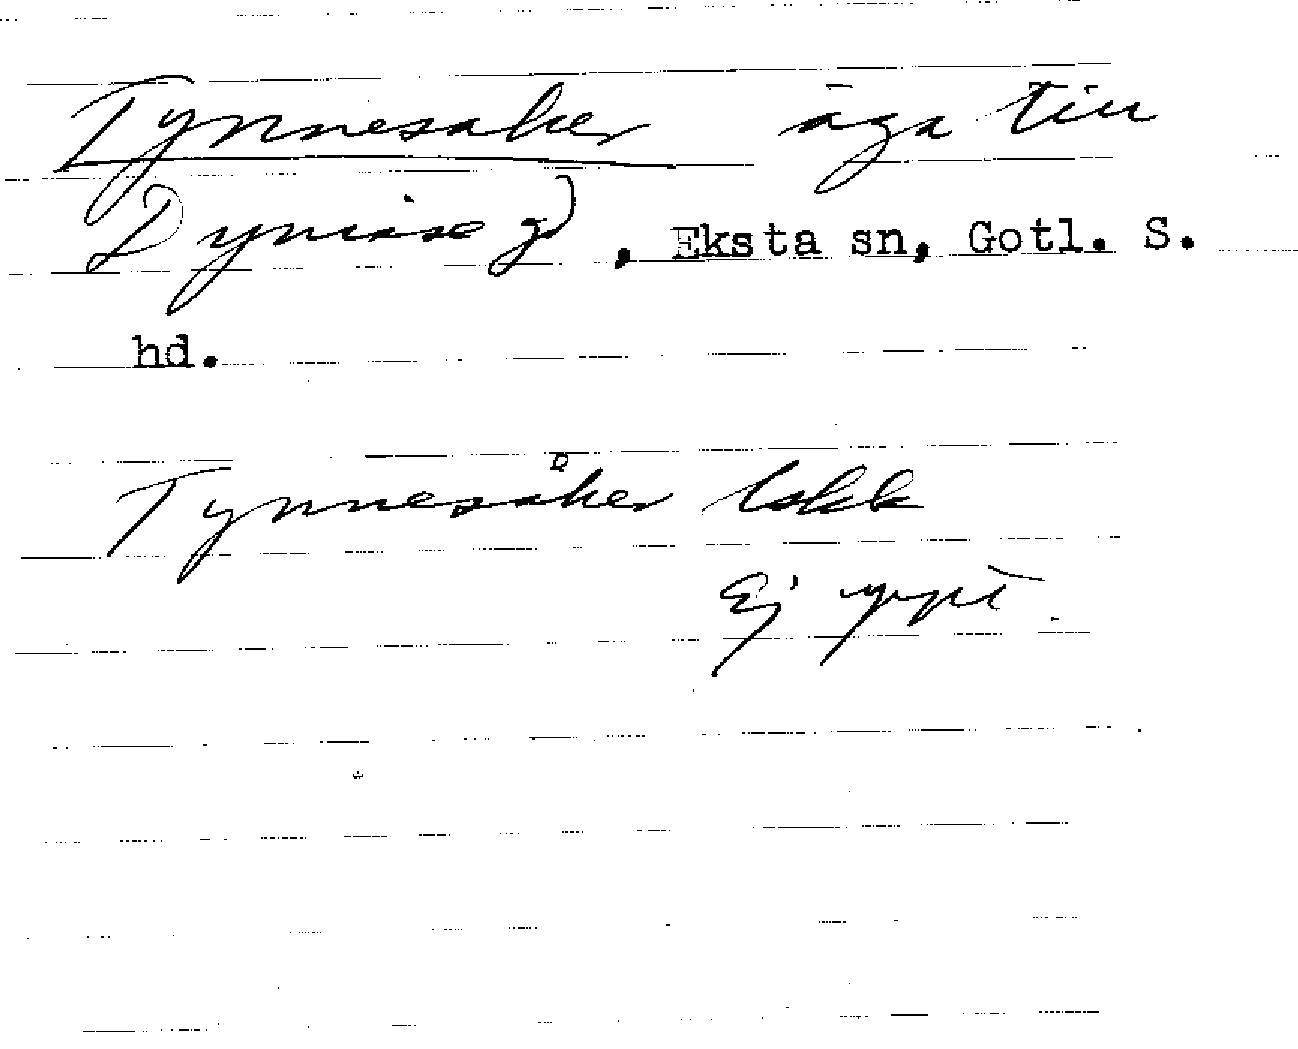 Tynnesaker äga till
Dynisse gd, Eksta sn, Gotl. S.
hd.
Tynnesåker lokk
Ej yppt.